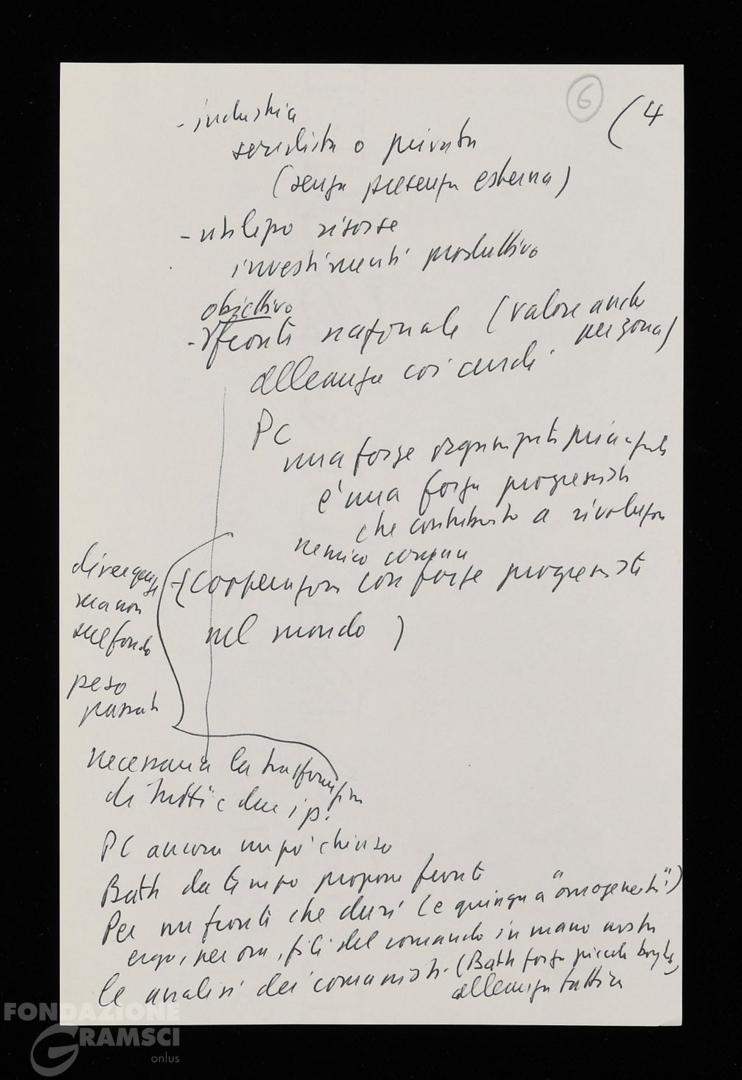 6
(4
- industria
socialista o privata
(senza presenza esterna)
- utilizzo risorse
investimenti produttivo
obiettivo
- fronte nazionale (valore anche
per zona)
alleanza coi curdi
PC
una forza organizzata principale
è una forza progressista
che contribuito a rivoluzione
nemico comune
- (cooperazione con forze progressiste
nel mondo)
divergenze
ma non
sul fondo
peso
passato
necessaria la trasformazione
di tutti e due i p.
PC ancora un po' chiuso
Bath da tempo propone fronte
Per un fronte che duri (e quindi "omogeneità")
ergo, per ora, fili del comando in mano nostra
le analisi dei comunisti (Bath forza piccolo borghese,
alleanza tattica
FONDAZIONE
GRAMSCI
onlus